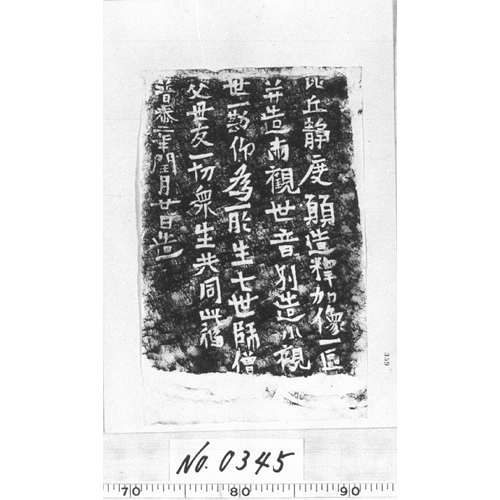 比丘静度願造釋加像一區
并造兩觀世音別造小觀
世一勘仰為所生七世師僧
父母及一切衆生共同此福
普泰二年閏月廿日造
No. 0345
339
70 80 90